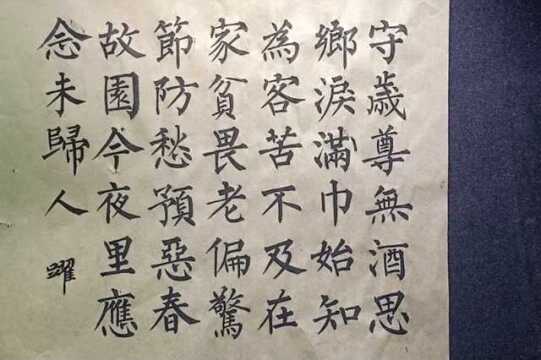 守歲尊無酒思
鄉淚滿巾始知
為客苦不及在
家貧畏老偏驚
節防愁預惡春
故園今夜里應
念未歸人
躍